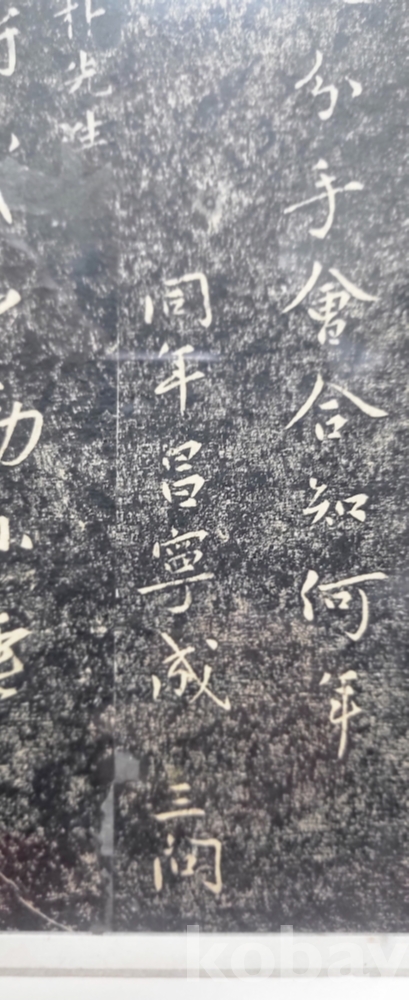 分手會合知何年
同年昌寧成 三問
朴先生
kobay